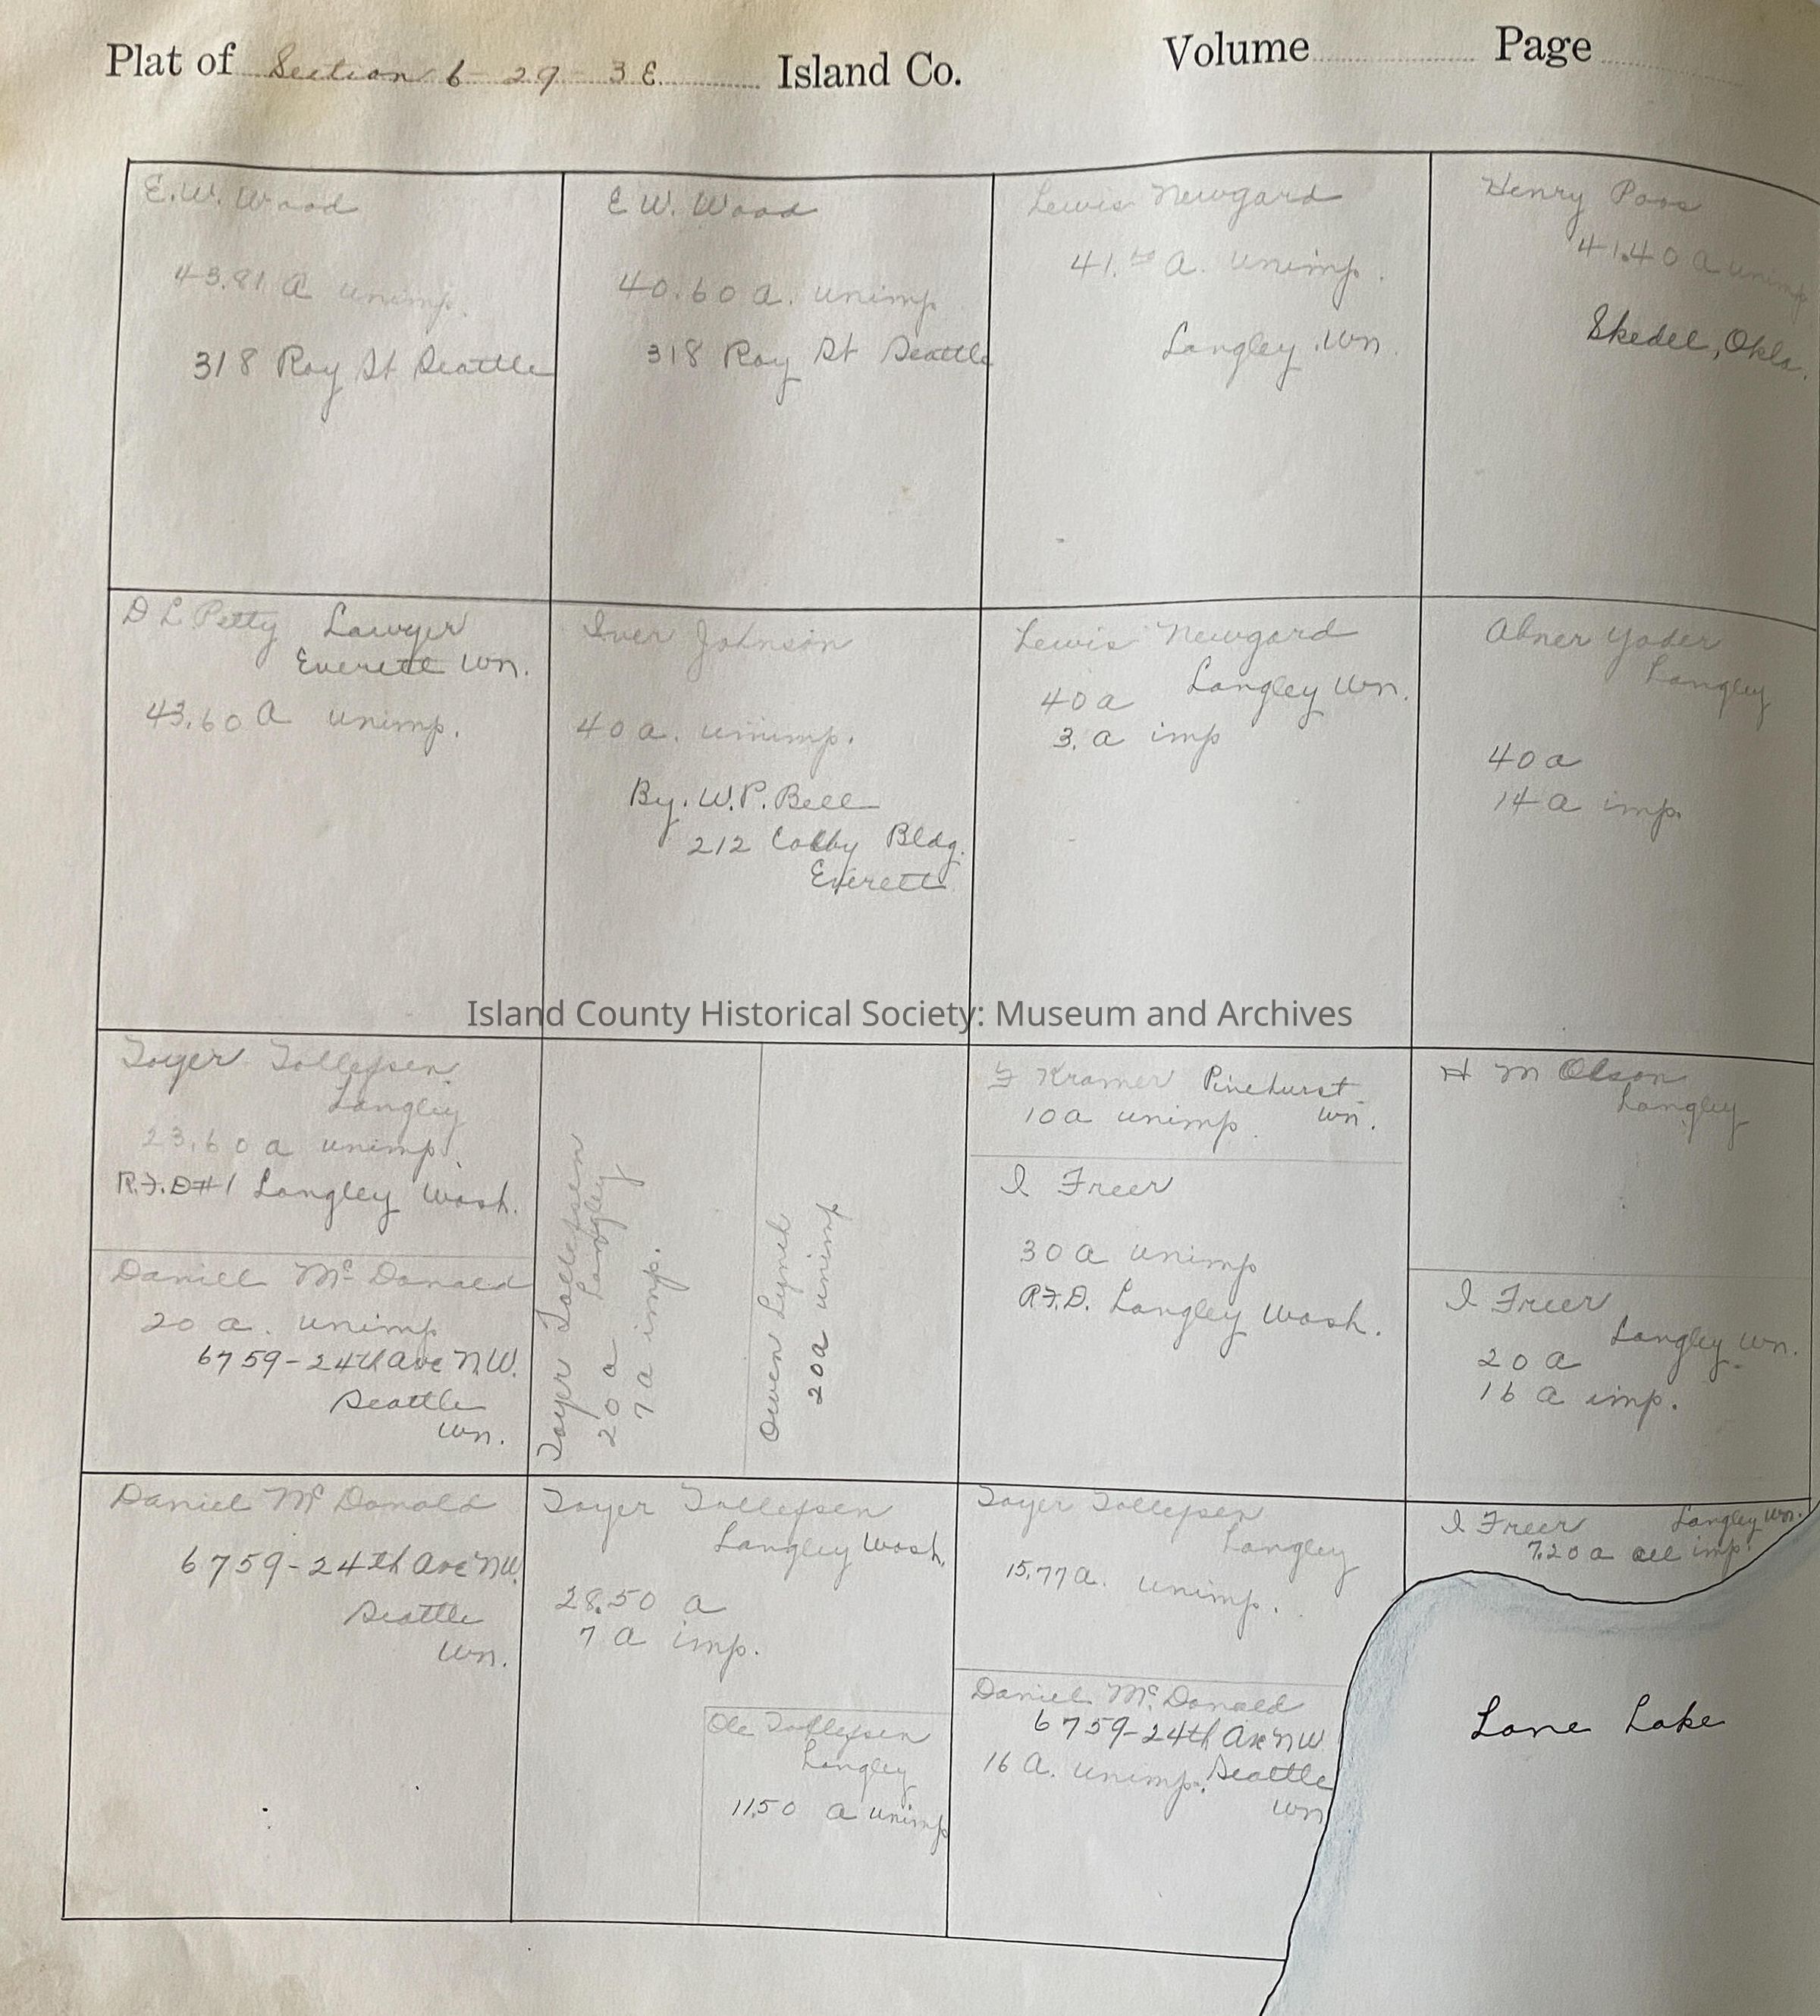 Plat of Section 6 - 29 - 3 E. Island Co. Volume Page
E.W. Wood
43.81 a unimp.
318 Roy St Seattle
E W. Wood
40.60 a. unimp
318 Roy St Seattle
Lewis Newgard
41. a. unimp.
Langley Wn.
Henry Poos
41.40 a unimp
Skedee, Okla.
D L Petty Lawyer
Everett Wn.
43.60 a unimp.
Iver Johnson
40 a. unimp.
By. W.P. Bell
212 Colby Bldg.
Everett
Lewis Newgard
Langley Wn.
40 a
3. a imp
Abner Yoder
Langley
40 a
14 a imp.
Toyer Tollefsen
Langley
23.60 a unimp.
R.F.D #1 Langley Wash.
Daniell McDonald
20 a. unimp
6759-24th Ave N.W.
Seattle
Wn.
Toyer Tollefsen
Langley
20 a
7 a imp.
Owen Lynch
20 a unimp
F Kramer Pinehurst
10 a unimp. Wn.
I Freer
30 a unimp
R.F.D. Langley Wash.
H M Olson
Langley
I Freer
Langley Wn.
20 a
16 a imp.
Daniel McDonald
6759-24th Ave NW.
Seattle
Wn.
Toyer Tollefsen
Langley Wash.
28.50 a
7 a imp.
Ole Tollefsen
Langley
11.50 a unimp
Toyer Tollefsen
Langley
15.77 a. unimp.
Daniel McDonald
6759-24th Ave NW
16 a. unimp. Seattle
Wn
I Freer Langley Wn.
7.20 a all imp
Lone Lake
Island County Historical Society: Museum and Archives